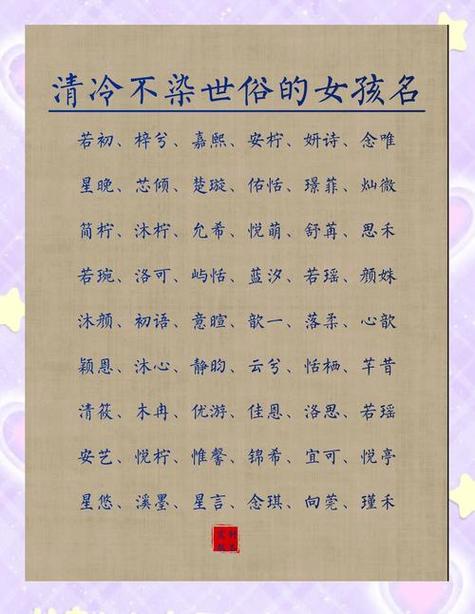 清冷不染世俗的女孩名
若初、梓兮、嘉熙、安柠、妍诗、念唯
星晚、芯倾、楚璇、佑恬、璟菲、灿微
简柠、沐柠、允希、悦萌、舒苒、思禾
若琬、洛可、屿恬、蓝汐、若瑶、颜姝
沐颜、初语、意暄、歆一、落柔、心歆
颖恩、沐心、静昀、云兮、恬栖、芊昔
清筱、木冉、优游、佳恩、洛思、若瑶
安艺、悦柠、惟馨、锦希、宜可、悦亭
星悠、溪墨、星言、念琪、向莞、瑾禾